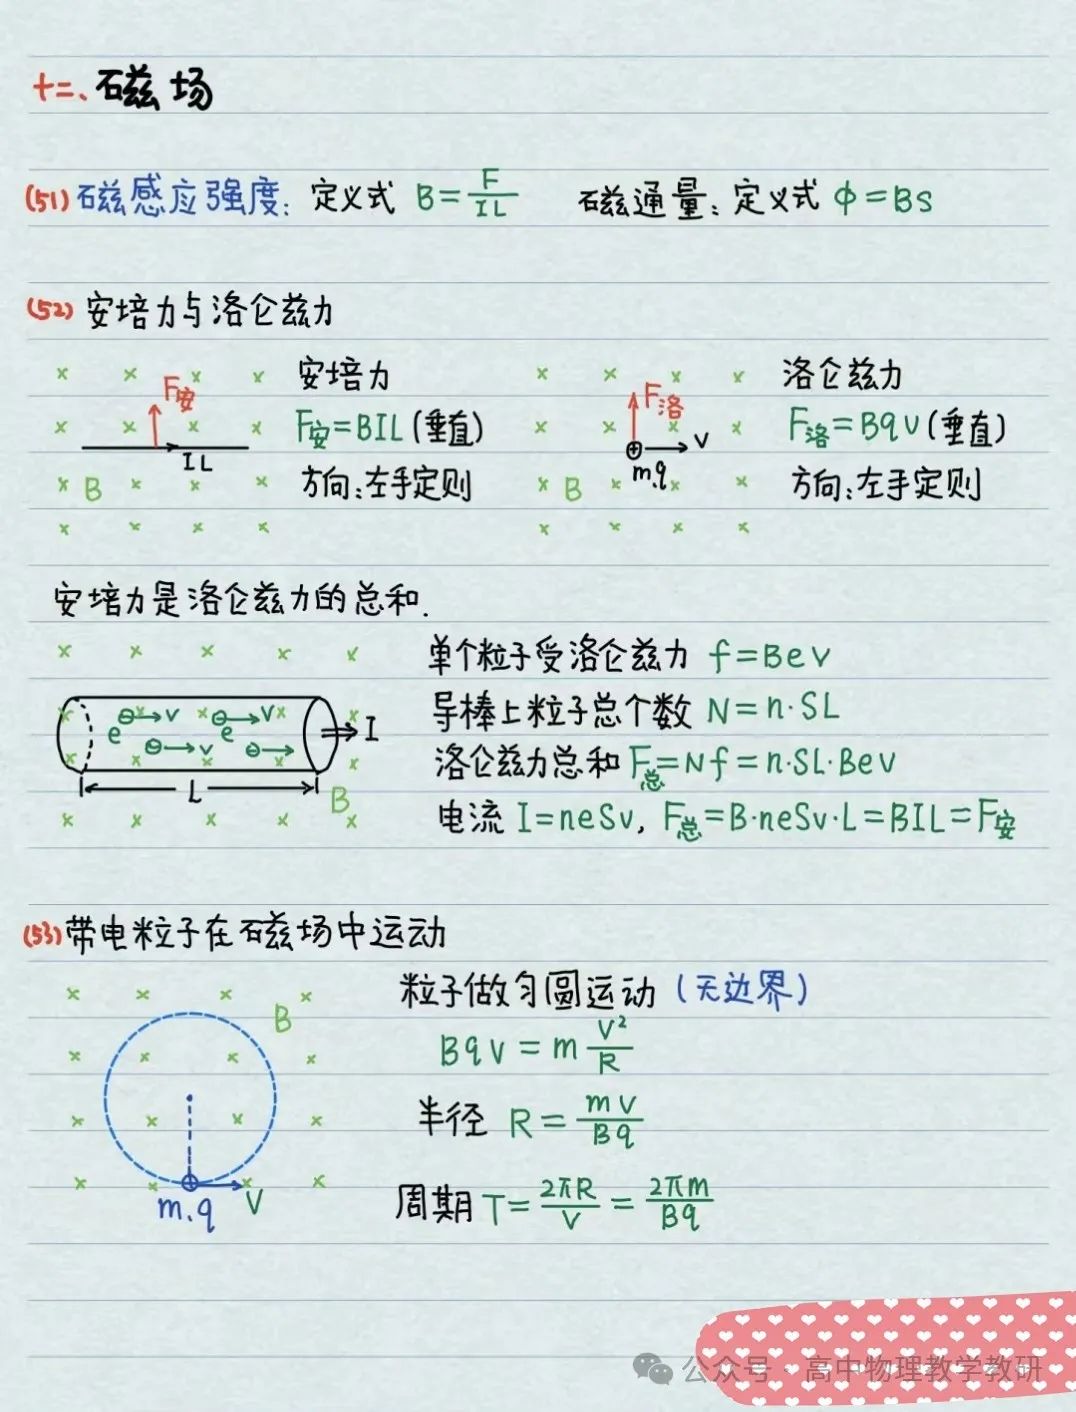 十二、磁场
(51) 磁感应强度: 定义式 B=F/IL 磁通量: 定义式 Φ=BS
(52) 安培力与洛仑兹力
F安
IL
B
安培力
F安=BIL(垂直)
方向:左手定则
F洛
V
m.q
B
洛仑兹力
F洛=BqV(垂直)
方向:左手定则
安培力是洛仑兹力的总和.
e
V
e
V
V
I
L
B
单个粒子受洛仑兹力 f=BeV
导棒上粒子总个数 N=n·SL
洛仑兹力总和 F总=Nf=n·SL·BeV
电流 I=neSv, F总=B·neSv·L=BIL=F安
(53) 带电粒子在磁场中运动
B
m.q
V
粒子做匀圆运动(无边界)
BqV=m V²/R
半径 R=mV/Bq
周期 T=2πR/V=2πm/Bq
公众号·高中物理教学教研